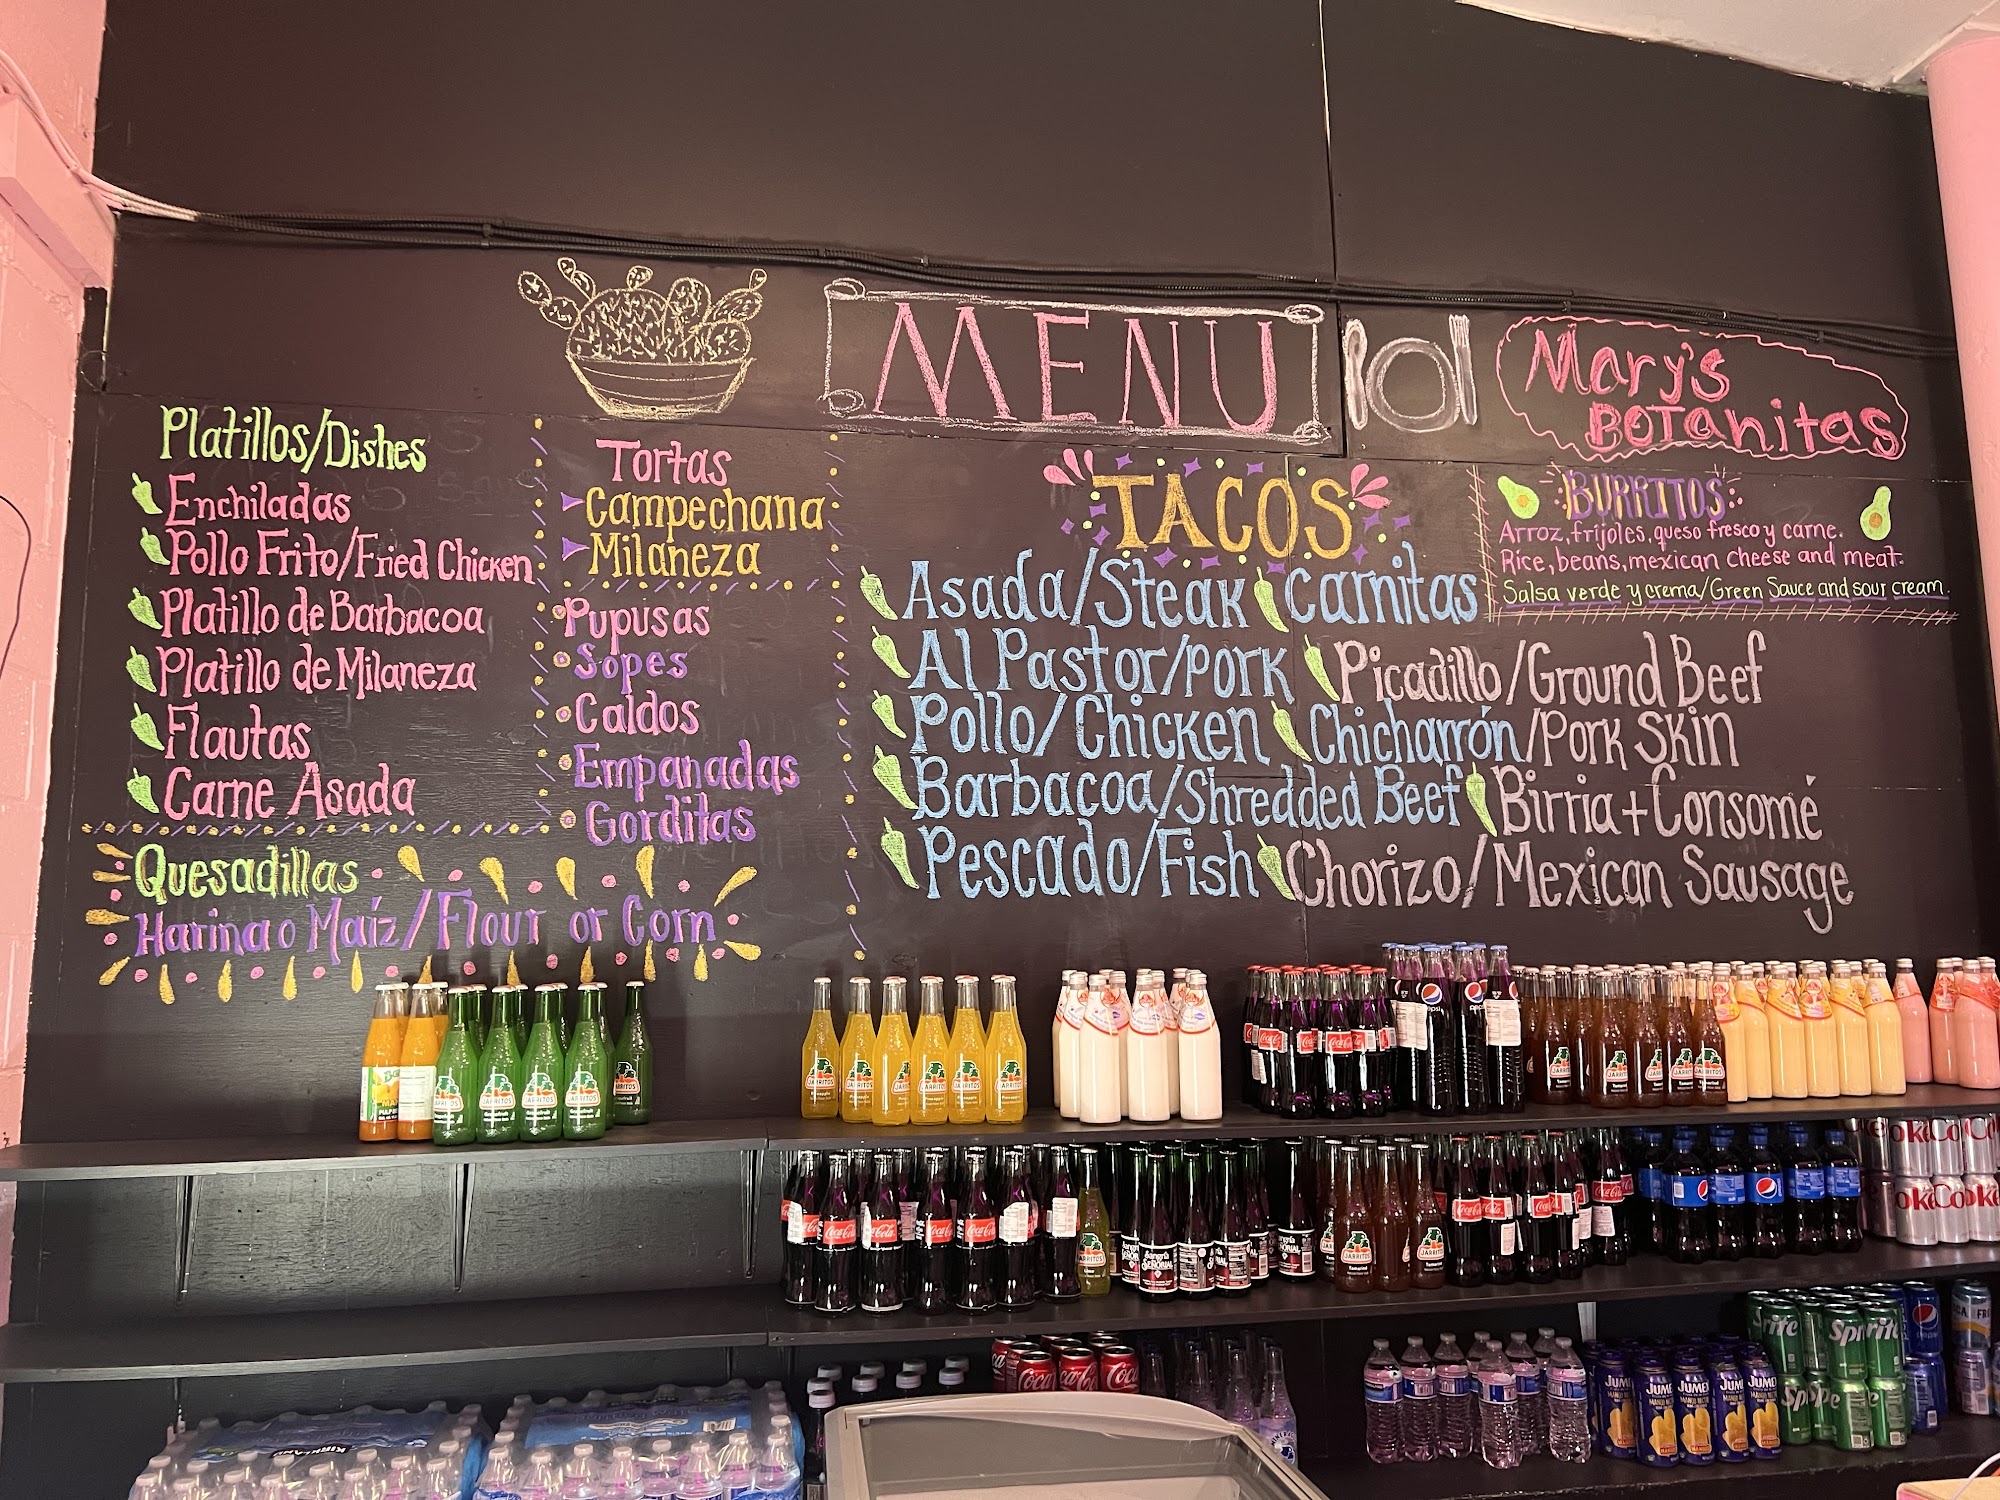 MENU
Mary's
BOTanitas
Platillos/Dishes
Enchiladas
Pollo Frito/Fried Chicken
Platillo de Barbacoa
Platillo de Milaneza
Flautas
Carne Asada
Quesadillas
Harina o Maíz/Flour or Corn
Tortas
Campechana
Milaneza
Pupusas
Sopes
Caldos
Empanadas
Gorditas
TACOS
Asada/Steak
Carnitas
Al Pastor/pork
Picadillo/Ground Beef
Pollo/Chicken
Chicharrón/Pork Skin
Barbacoa/Shredded Beef
Birria+Consomé
Pescado/Fish
Chorizo/Mexican Sausage
BURRITOS
Arroz, frijoles, queso fresco y carne.
Rice, beans, mexican cheese and meat.
Salsa verde y crema/Green Sauce and sour cream.
JARRITOS
JARRITOS
JARRITOS
JARRITOS
JARRITOS
JARRITOS
JARRITOS
JARRITOS
Pineapple
pepsi
JARRITOS
Tamarind
Coca-Cola
Coca-Cola
Coca-Cola
Sangría
SEÑORIAL
JARRITOS
Tamarind
JARRITOS
Coca-Cola
Coke
Coke
Coca
JUMEX
JUMEX
JUMEX
MANGO NECTAR
Sprite
Sprite
pepsi
KIRKLAND